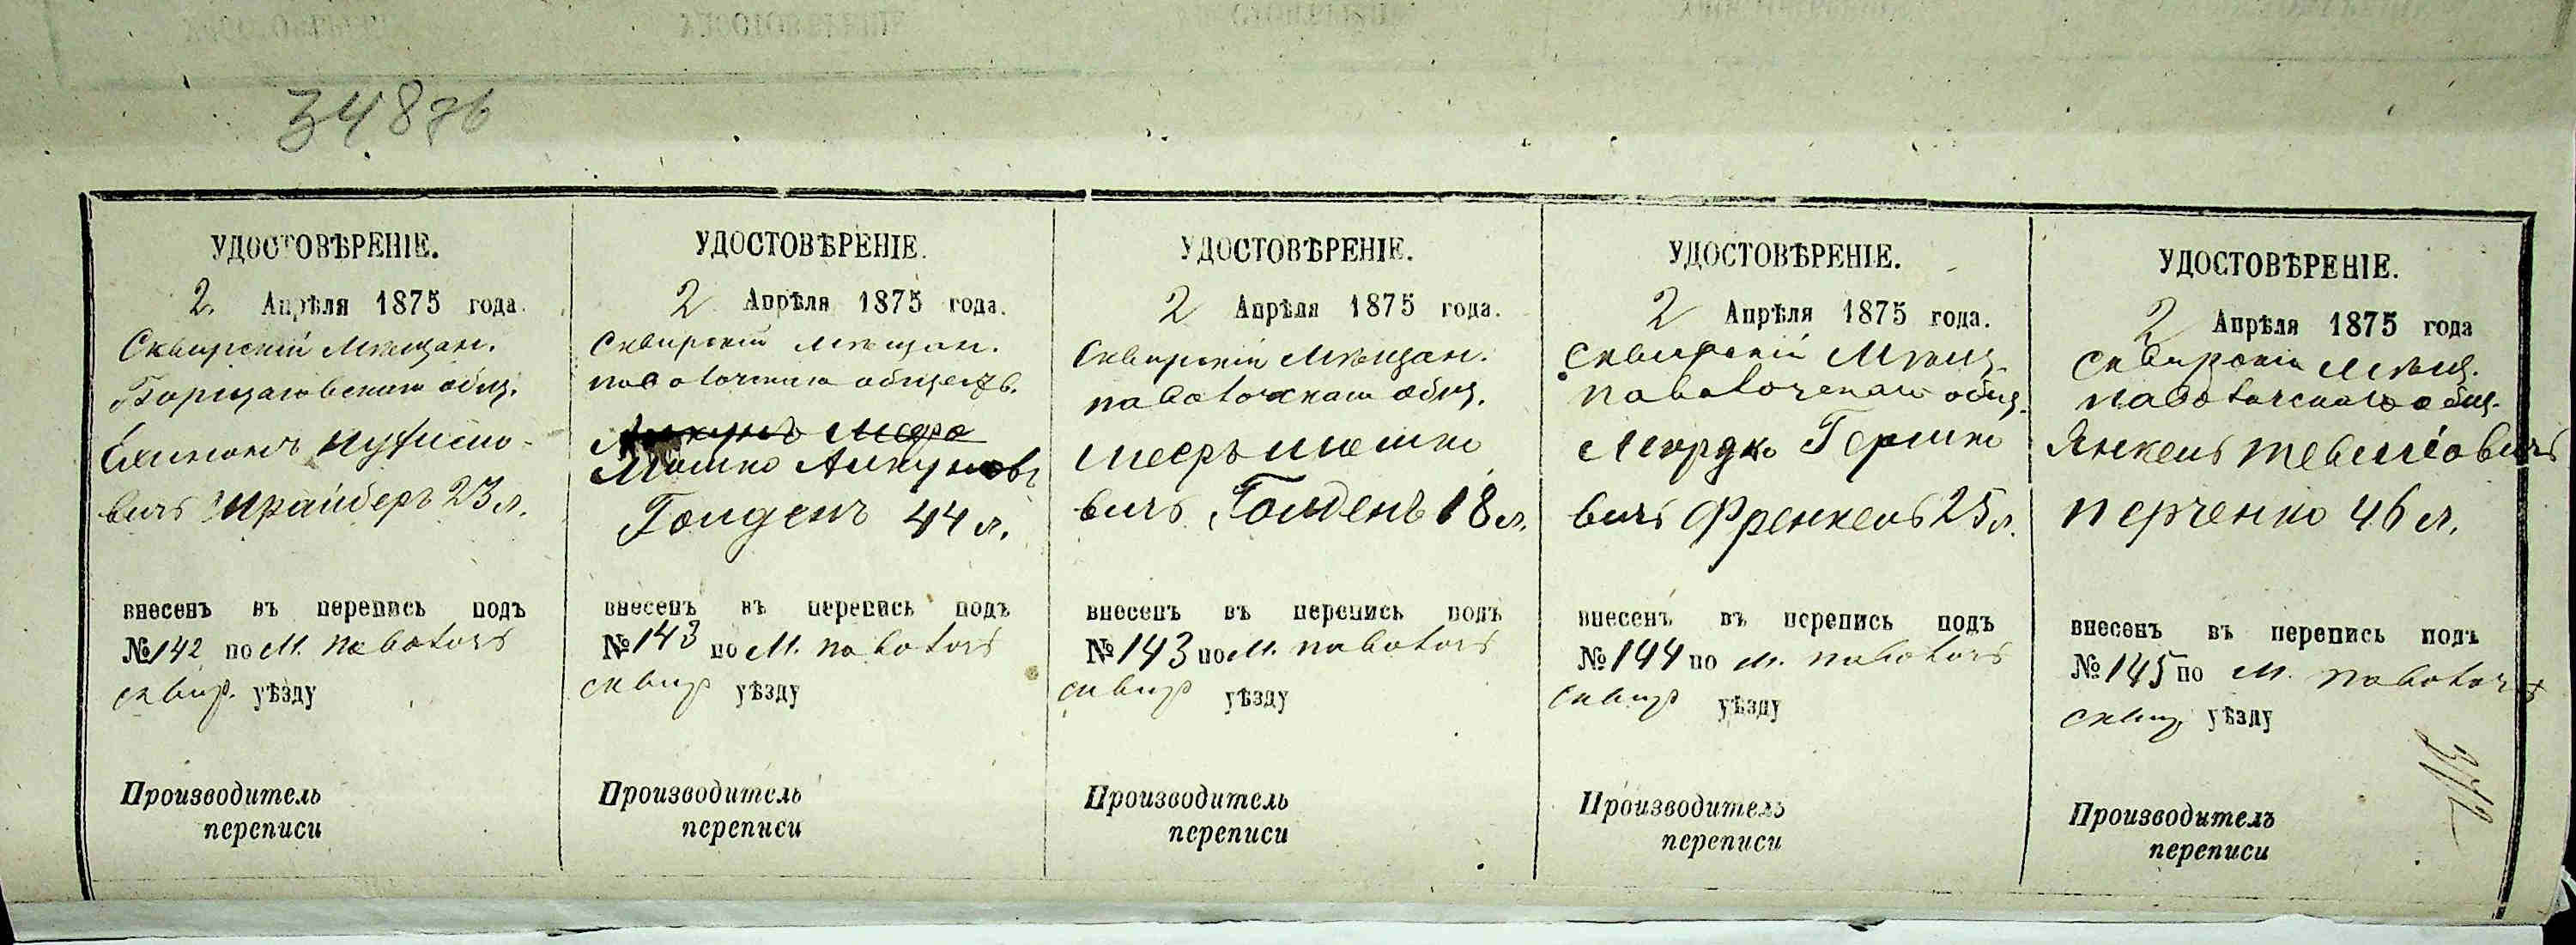 348 зв
УДОСТОВѢРЕНІЕ.
2. Апрѣля 1875 года.
Сквирскій Мѣщан.
Борщаговскаго общ.
вичъ Шрайберъ 23 л.
внесенъ въ перепись подъ
№ 142 по М. Паволочъ
сквир. уѣзду
Производитель
переписи
УДОСТОВѢРЕНІЕ.
2 Апрѣля 1875 года.
Сквирскій мѣщан.
паволочскаго обществ.
Мошко
Голденъ 44 л.
внесенъ въ перепись подъ
№ 143 по М. Паволочъ
сквир уѣзду
Производитель
переписи
УДОСТОВѢРЕНІЕ.
2 Апрѣля 1875 года.
Сквирскій Мѣщан.
паволочскаго общ.
Мееръ Мошко
вичъ Голденъ 18 л.
внесенъ въ перепись подъ
№ 143 по М. паволочъ
сквир уѣзду
Производитель
переписи
УДОСТОВѢРЕНІЕ.
2 Апрѣля 1875 года.
Сквирскій Мѣщ.
паволочскаго общ.
Мордко Гершко
вичъ Френкель 25 л.
внесенъ въ перепись подъ
№ 144 по м. паволочъ
сквир уѣзду
Производитель
переписи
УДОСТОВѢРЕНІЕ.
2 Апрѣля 1875 года
Сквирскій Мѣщ.
паволочскаго общ.
Янкель Тевелiовичъ
Перченко 46 л.
внесенъ въ перепись подъ
№ 145 по М. паволочъ
сквир уѣзду
Производитель
переписи